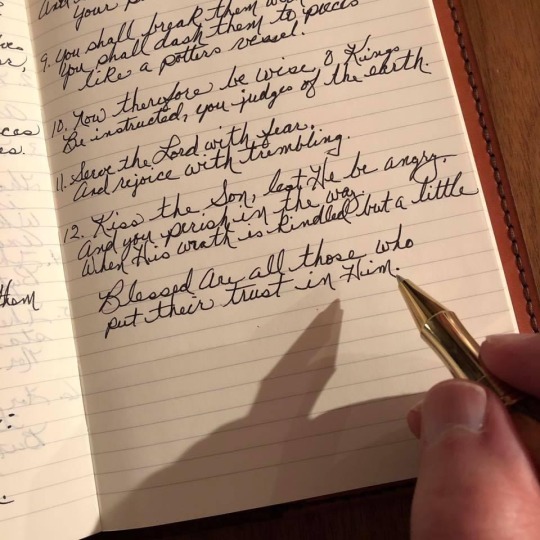 your
9. you shall break them
You shall dash them to pieces
like a potters vessel.
10. Now therefore be wise, O, Kings
Be instructed, you judges of the earth.
11. Serve the Lord with fear,
And rejoice with trembling.
12. Kiss the Son, lest He be angry,
And you perish in the way,
When His wrath is kindled but a little
Blessed Are all those who
put their trust in Him.